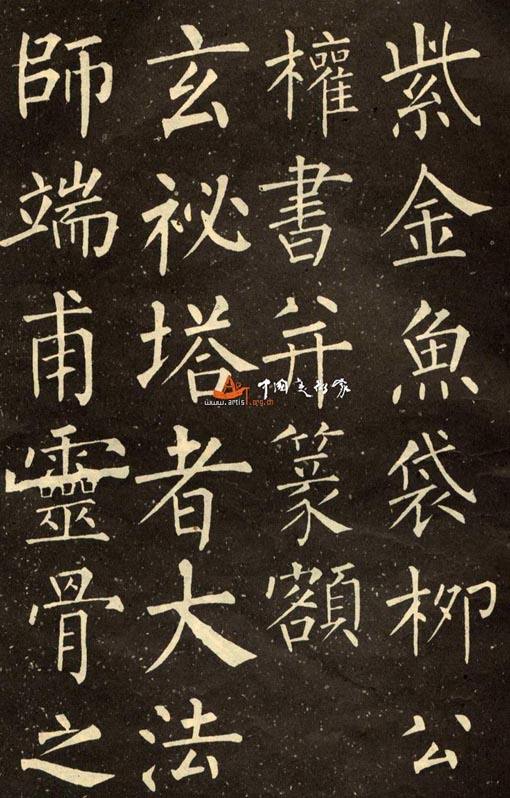 紫金魚袋柳公
權書并篆額
玄祕塔者大法
師端甫靈骨之
中国美术家
www.artist.org.cn